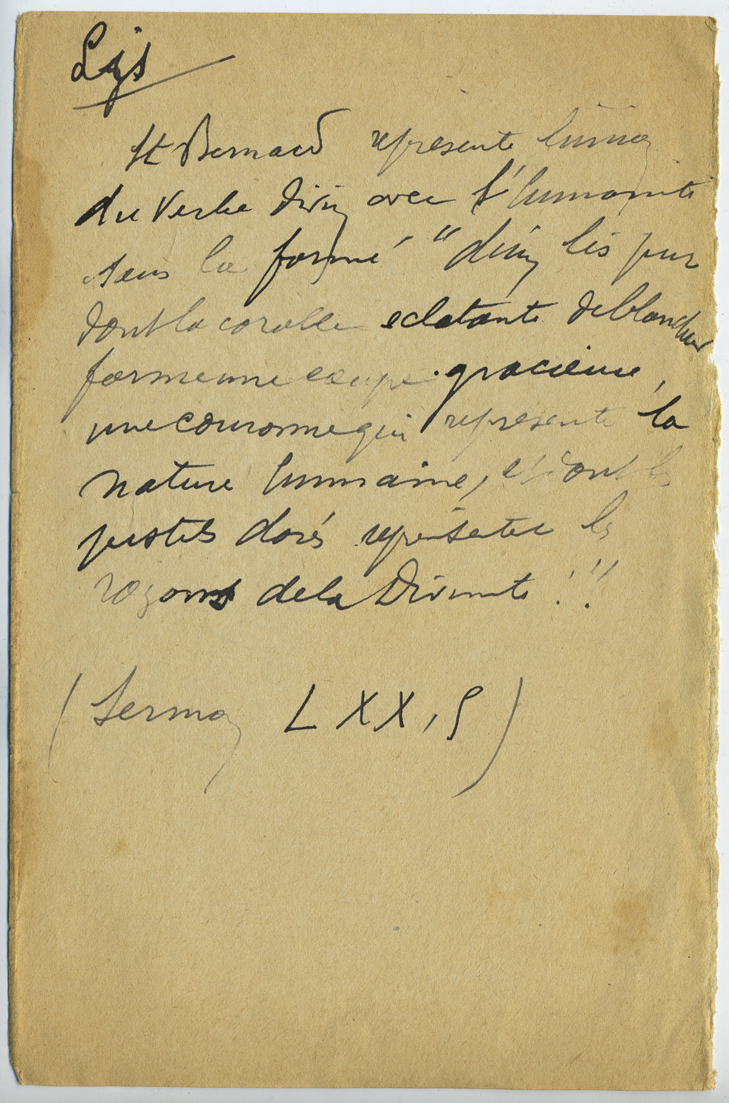 Lys
St Bernard represente l'union
du Verbe divin avec l'humanité
sous la forme "d'un lis pur
dont la corolle eclatante de blancheur
forme une coupe gracieuse,
une couronne qui represente la
nature humaine, et dont les
pistils dorés représentent les
rayons de la Divinité!"
(Sermon LXX, 5)